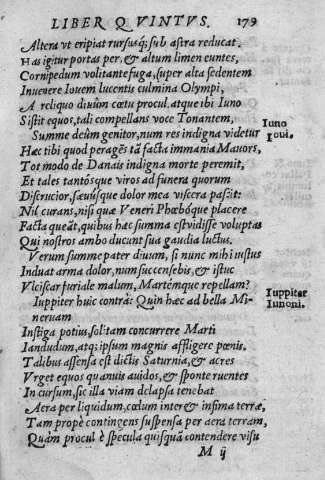 LIBER QVINTVS. 179
Altera vt eripiat rursusq́; sub astra reducat.
Has igitur portas per, & altum limen euntes,
Cornipedum volitante fuga, super alta sedentem
Inuenere Iouem lucentis culmina Olympi,
A reliquo diuûm cœtu procul. atque ibi Iuno
Sistit equos, tali compellans voce Tonantem,
Summe deûm genitor, num res indigna videtur
Iuno
Ioui.
Hæc tibi quod peragẽs tã facta immania Mauors,
Tot modo de Danais indigna morte peremit,
Et tales tantósque viros ad funera quorum
Discrucior, sæuúsque dolor mea viscera pascit:
Nil curans, nisi quæ Veneri Phœbóque placere
Facta queãt, quibus hæc summa est vidisse voluptas
Qui nostros ambo ducunt sua gaudia luctus.
Verum summe pater diuum, si nunc mihi iustus
Induat arma dolor, num succensebis, & istuc
Vlciscar furiale malum, Martémque repellam?
Iuppiter huic contrà: Quin hæc ad bella Mi-
neruam
Iuppiter
Iunoni.
Instiga potius, solitam concurrere Marti
Iandudum, atq; ipsum magnis affligere pœnis.
Talibus assensa est dictis Saturnia, & acres
Vrget equos quanuis auidos, & sponte ruentes
In cursum, sic illa viam delapsa tenebat
Aera per liquidum, cœlum inter & infima terræ,
Tam propè contingens suspensa per aera terram,
Quàm procul è specula quisquã contendere visu
M ij